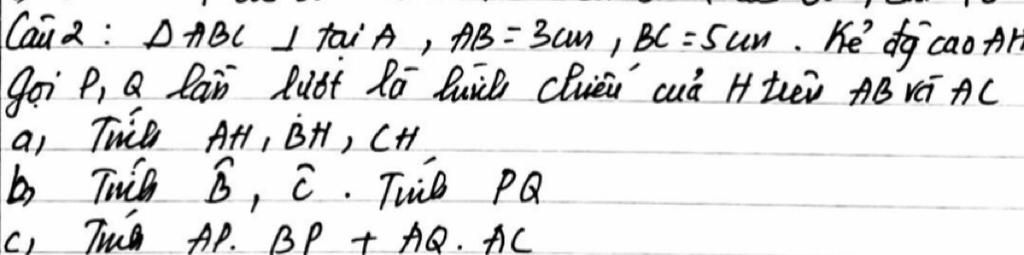 Câu 2 : Δ ABC ⊥ tại A , AB = 3cm , BC = 5cm . Kẻ đg cao AH
Gọi P, Q lần lượt là hình chiếu của H trên AB và AC
a, Tính AH, BH, CH
b, Tính B̂, Ĉ . Tính PQ
c, Tính AP. BP + AQ. AC